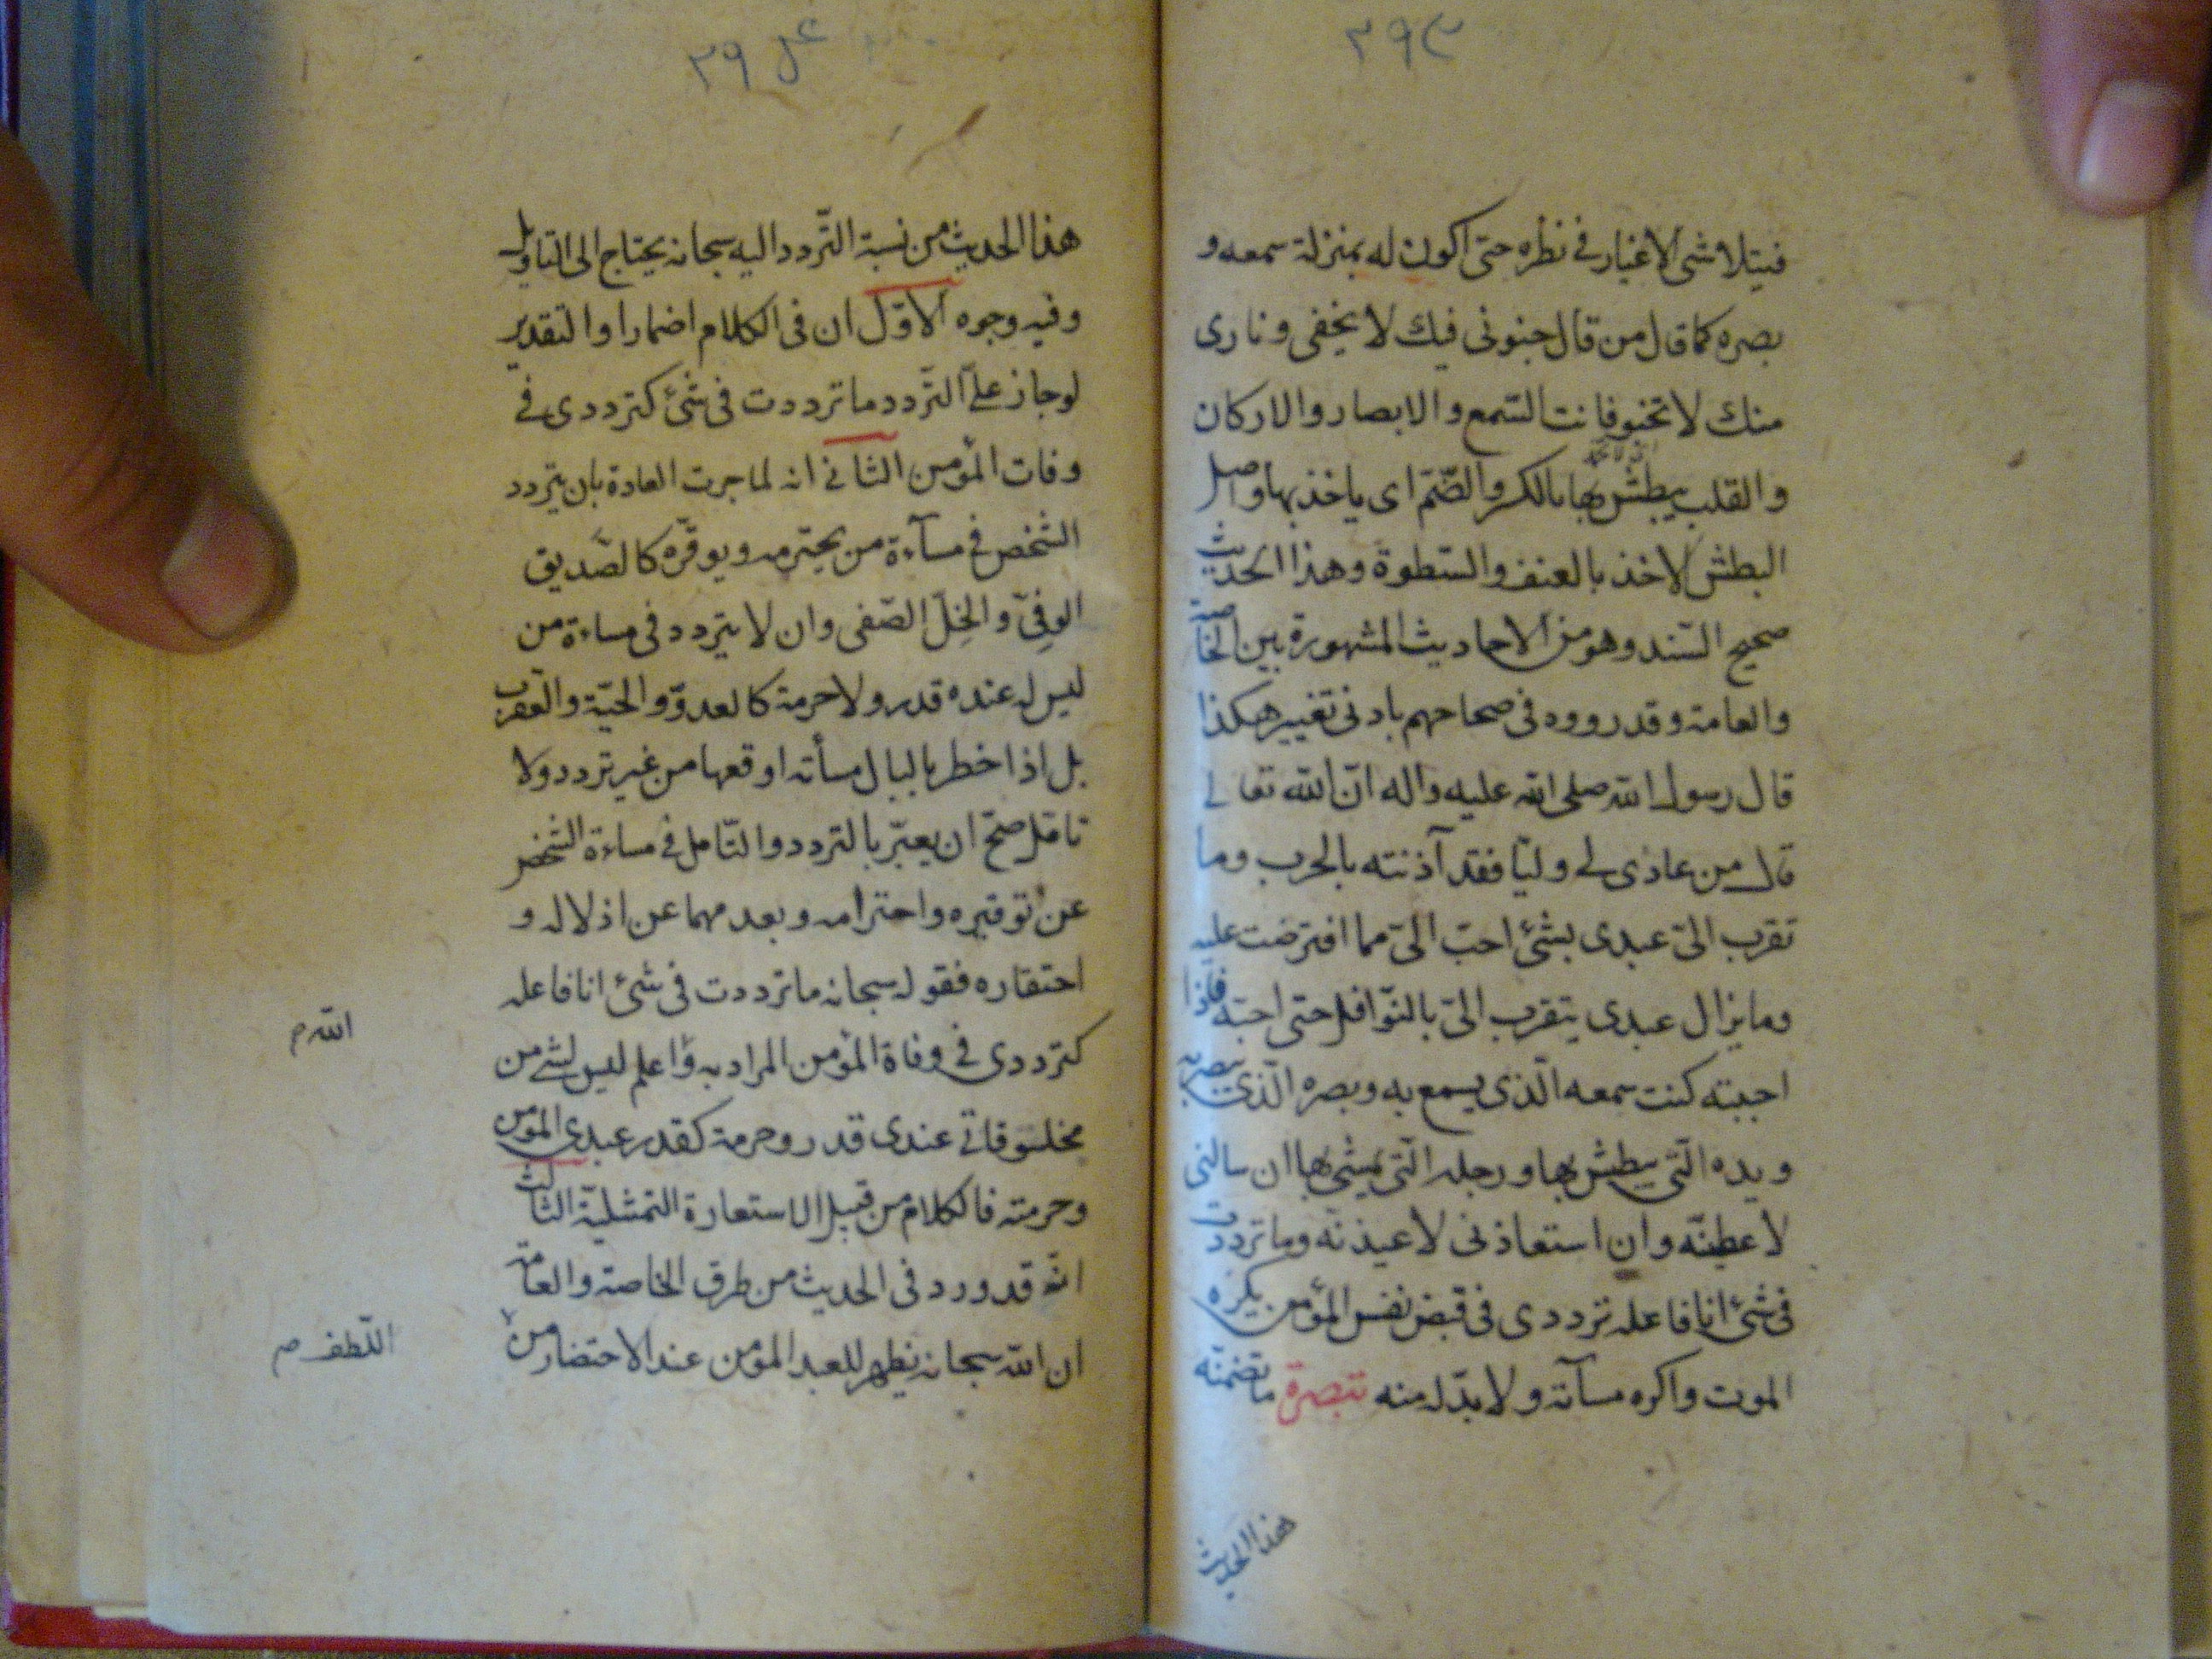 ٢٩٣
فيتلاشى الاغيار في نظره حتى اكون له بمنزلة سمعه و
بصره كما قال من قال جنونى فيك لا يخفى و نارى
منك لا تخبو فانت السّمع و الابصار والاركان
والقلب يبطش بها بالكسر والضّمّ اى ياخذ بها واصل
البطش الاخذ بالعنف والسّطوة وهذا الحديث
صحيح السّند وهو من الاحاديث المشهورة بين الخاصة
والعامة وقد رووه فى صحاحهم بادنى تغيير هكذا
قال رسول الله صلى الله عليه واله انّ الله تعالى
قال من عادى لى وليّا فقد آذنته بالحرب وما
تقرب الىّ عبدى بشئ احبّ الىّ مما افترضت عليه
وما يزال عبدى يتقرب الىّ بالنّوافل حتى احبّه فاذا
احببته كنت سمعه الّذى يسمع به وبصره الّذى يبصر به
ويده الّتى يبطش بها ورجله الّتى يمشى بها ان سالنى
لاعطينّه وان استعاذنى لاعيذنّه وما ترددت
فى شئ انا فاعله ترددى فى قبض نفس المؤمن يكره
الموت واكره مسآته ولا بدّ له منه تبصرة ما تضمنّه
هذا الحديث
٢٩٤
هذا الحديث من نسبة التّردد اليه سبحانه يحتاج الى التاويل
وفيه وجوه الاوّل ان فى الكلام اضمارا والتقدير
لو جاز علىّ التّردد ما ترددت فى شئ كترددى فى
وفات المؤمن الثانى انه لما جرت العادة بان يتردد
الشخص فى مسآءة من يحترمه ويوقّره كالصّديق
الوفىّ والخِلّ الصّفى وان لا يتردد فى مساءة من
ليس له عنده قدر ولا حرمة كالعدوّ والحيّة والعقرب
بل اذا خطر بالبال مسأته اوقعها من غير تردد ولا
تامّل صحّ ان يعبّر بالتردد والتّامل فى مساءة الشخص
عن توقيره واحترامه وبعدمهما عن اذلاله و
احتقاره فقوله سبحانه ما ترددت فى شئ انا فاعله
كترددى فى وفاة المؤمن المراد به واعلم ليس لشئ من
الله م
مخلوقاتى عندى قدر وحرمة كقدر عبدى المؤمن
وحرمته فالكلام من قبيل الاستعارة التمثيليّة الثالث
انّه قد ورد فى الحديث من طرق الخاصة والعامة
ان الله سبحانه يظهر للعبد المؤمن عند الاحتضار من
اللّطف م